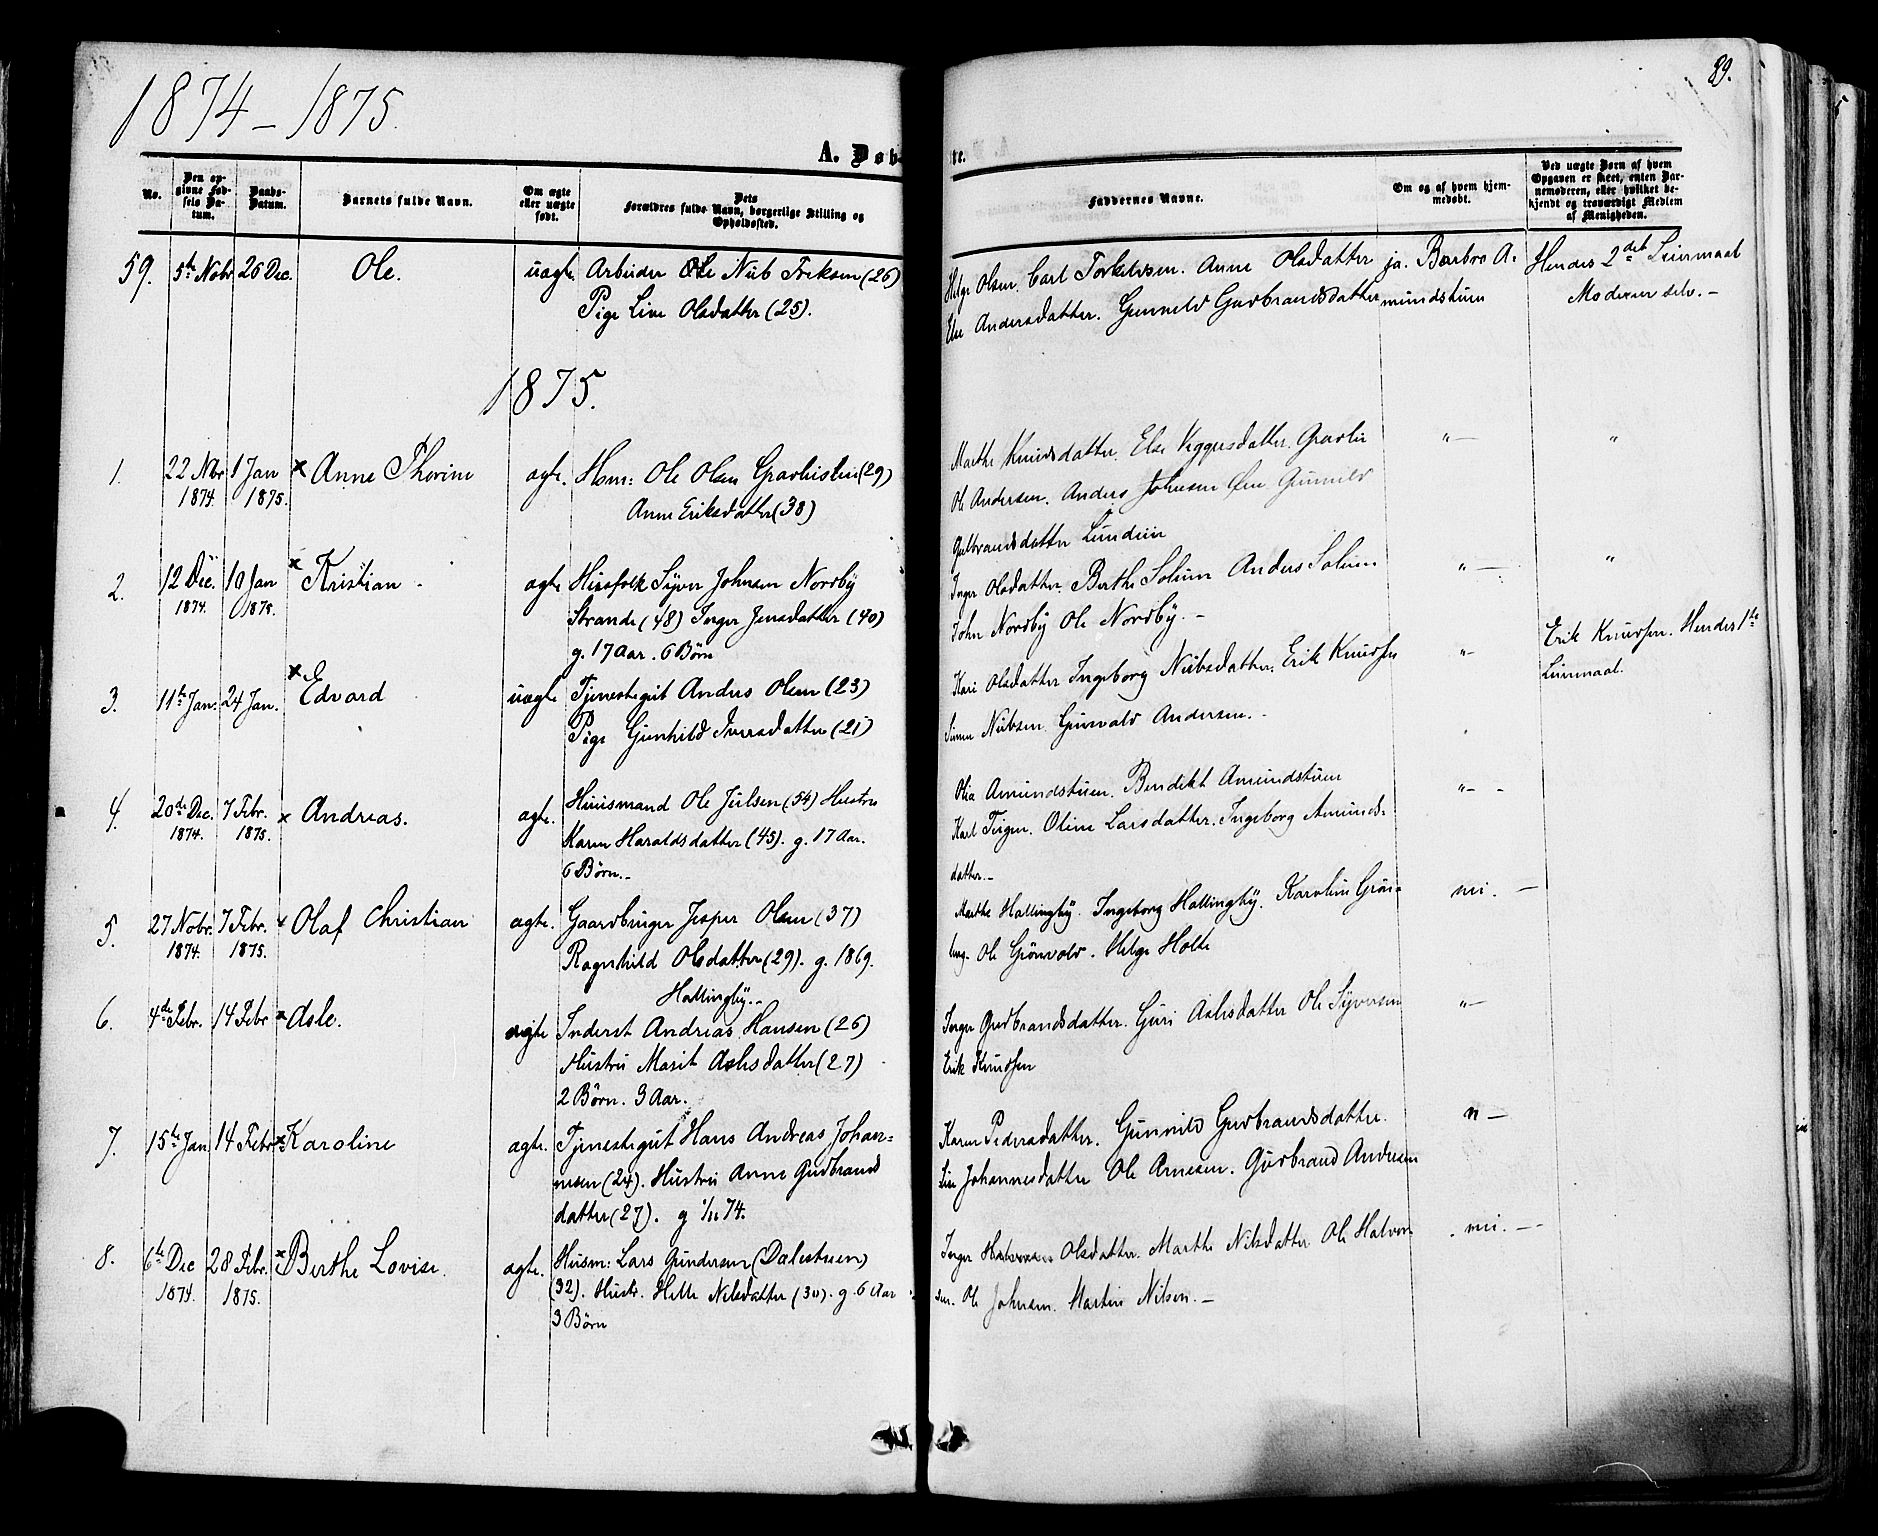 1874 - 1875.
89.
A. Døb-
te.
No.
Den op-
givne Fød-
sels Da-
tum.
Daabs-
Datum.
Barnets fulde Navn.
Om ægte
eller uægte
født.
Dets
Forældres fulde Navn, borgerlige Stilling og
Opholdssted.
Faddernes Navne.
Om og af hvem hjem-
medøbt.
Ved uægte Børn af hvem
Opgaven er skeet, enten Bar-
nemoderen, eller hvilket be-
kjendt og troværdigt Medlem
af Menigheden.
59. 5te Nobr 26 Dec. Ole. uægte Arbeider Ole Nub Eriksen (26)
Pige Live Olsdatter (25).
Helge Olsen. Carl Torkelssen. Anne Olsdatter
Else Andersdatter. Gunnild Gudbrandsdatter
ja. Barbro A-
mundstuen
Hendes 2det Leiermaal
Moderen selv. -
1875.
1. 22 Nbr 1 Jan × Anne Thorine ægte. Hsm: Ole Olsen (29)
1874. 1875. Anne Eriksdatter (38)
Marthe Knudsdatter. Else Viggersdatter.
Ole Andersen. Anders Johnsen Gunnild
Gulbrandsdatter Lundeie
" —
"
2. 12 Dec. 10 Jan × Kristian - ægte Syver Johnsen Nordby
1874. 1875. Strande (48) Inger Jensdatter (40)
g. 17 Aar. 6 Børn
Inger Olsdatter. Berthe Solum Anders Solum
John Nordby Ole Nordby. -
" —
"
3. 11te Jan. 24 Jan. × Edvard uægte Tjenestegut Anders Olsen (23)
Pige Gunhild Iversdatter (21)
Kari Olsdatter Ingeborg Nubsdatter. Erik Knudsen
Simen Nubsen Gunvald Andersen. -
" -
Erik Knudsen. Hendes 1ste
Leiermaal.
4. 20de Dec. 7 Febr. × Andreas. ægte. Huusmand Ole Julsen (54) Hustru
1874. 1875. Karen Haraldsdatter (45). g. 17 Aar.
6 Børn. -
Olia Amundstuen. Bendikt Amundstuen
Karl Oline Larsdatter. Ingeborg Amunds-
datter. -
" - -
5. 27 Nobr. 7 Febr. × Olaf Christian ægte. Gaardbruger Jesper Olsen (37)
1874. 1875. Ragnhild Olsdatter (29). g. 1869.
Hallingby. -
Marthe Hallingby. Ingeborg Hallingby. Karoline Grön-
Ole Grönvold. Helge Holte
nei. —
6. 4de Febr. 14 Febr × Asle. ægte Inderst Andreas Hansen (26)
Hustru Marit Aslesdatter (27)
2 Børn. 3 Aar.
Inger Gudbrandsdatter. Guri Aslesdatter Ole Syversen
Erik Knudsen
" —
7. 15te Jan 14 Febr × Karoline ægte. Tjenestegut Hans Andreas Johan-
nesen (24). Hustru Anne Gudbrands
datter (27). g 1/11 74.
Karen Pedersdatter. Gunnild Gudbrandsdatter.
Live Johannesdatter Ole Arnesen. Gudbrand Andersen
" —
8. 6te Dec 28 Febr. × Berthe Lovise. ægte. Husm: Lars Gundersen (Dalestuen)
1874. 1875. (32). Hustr. Helle Nilsdatter (30). g. 6 Aar
3 Børn
Inger Olsdatter. Marthe Nilsdatter Ole Halvor
sen. Ole Johnsen. Martin Nilsen. —
nei. —